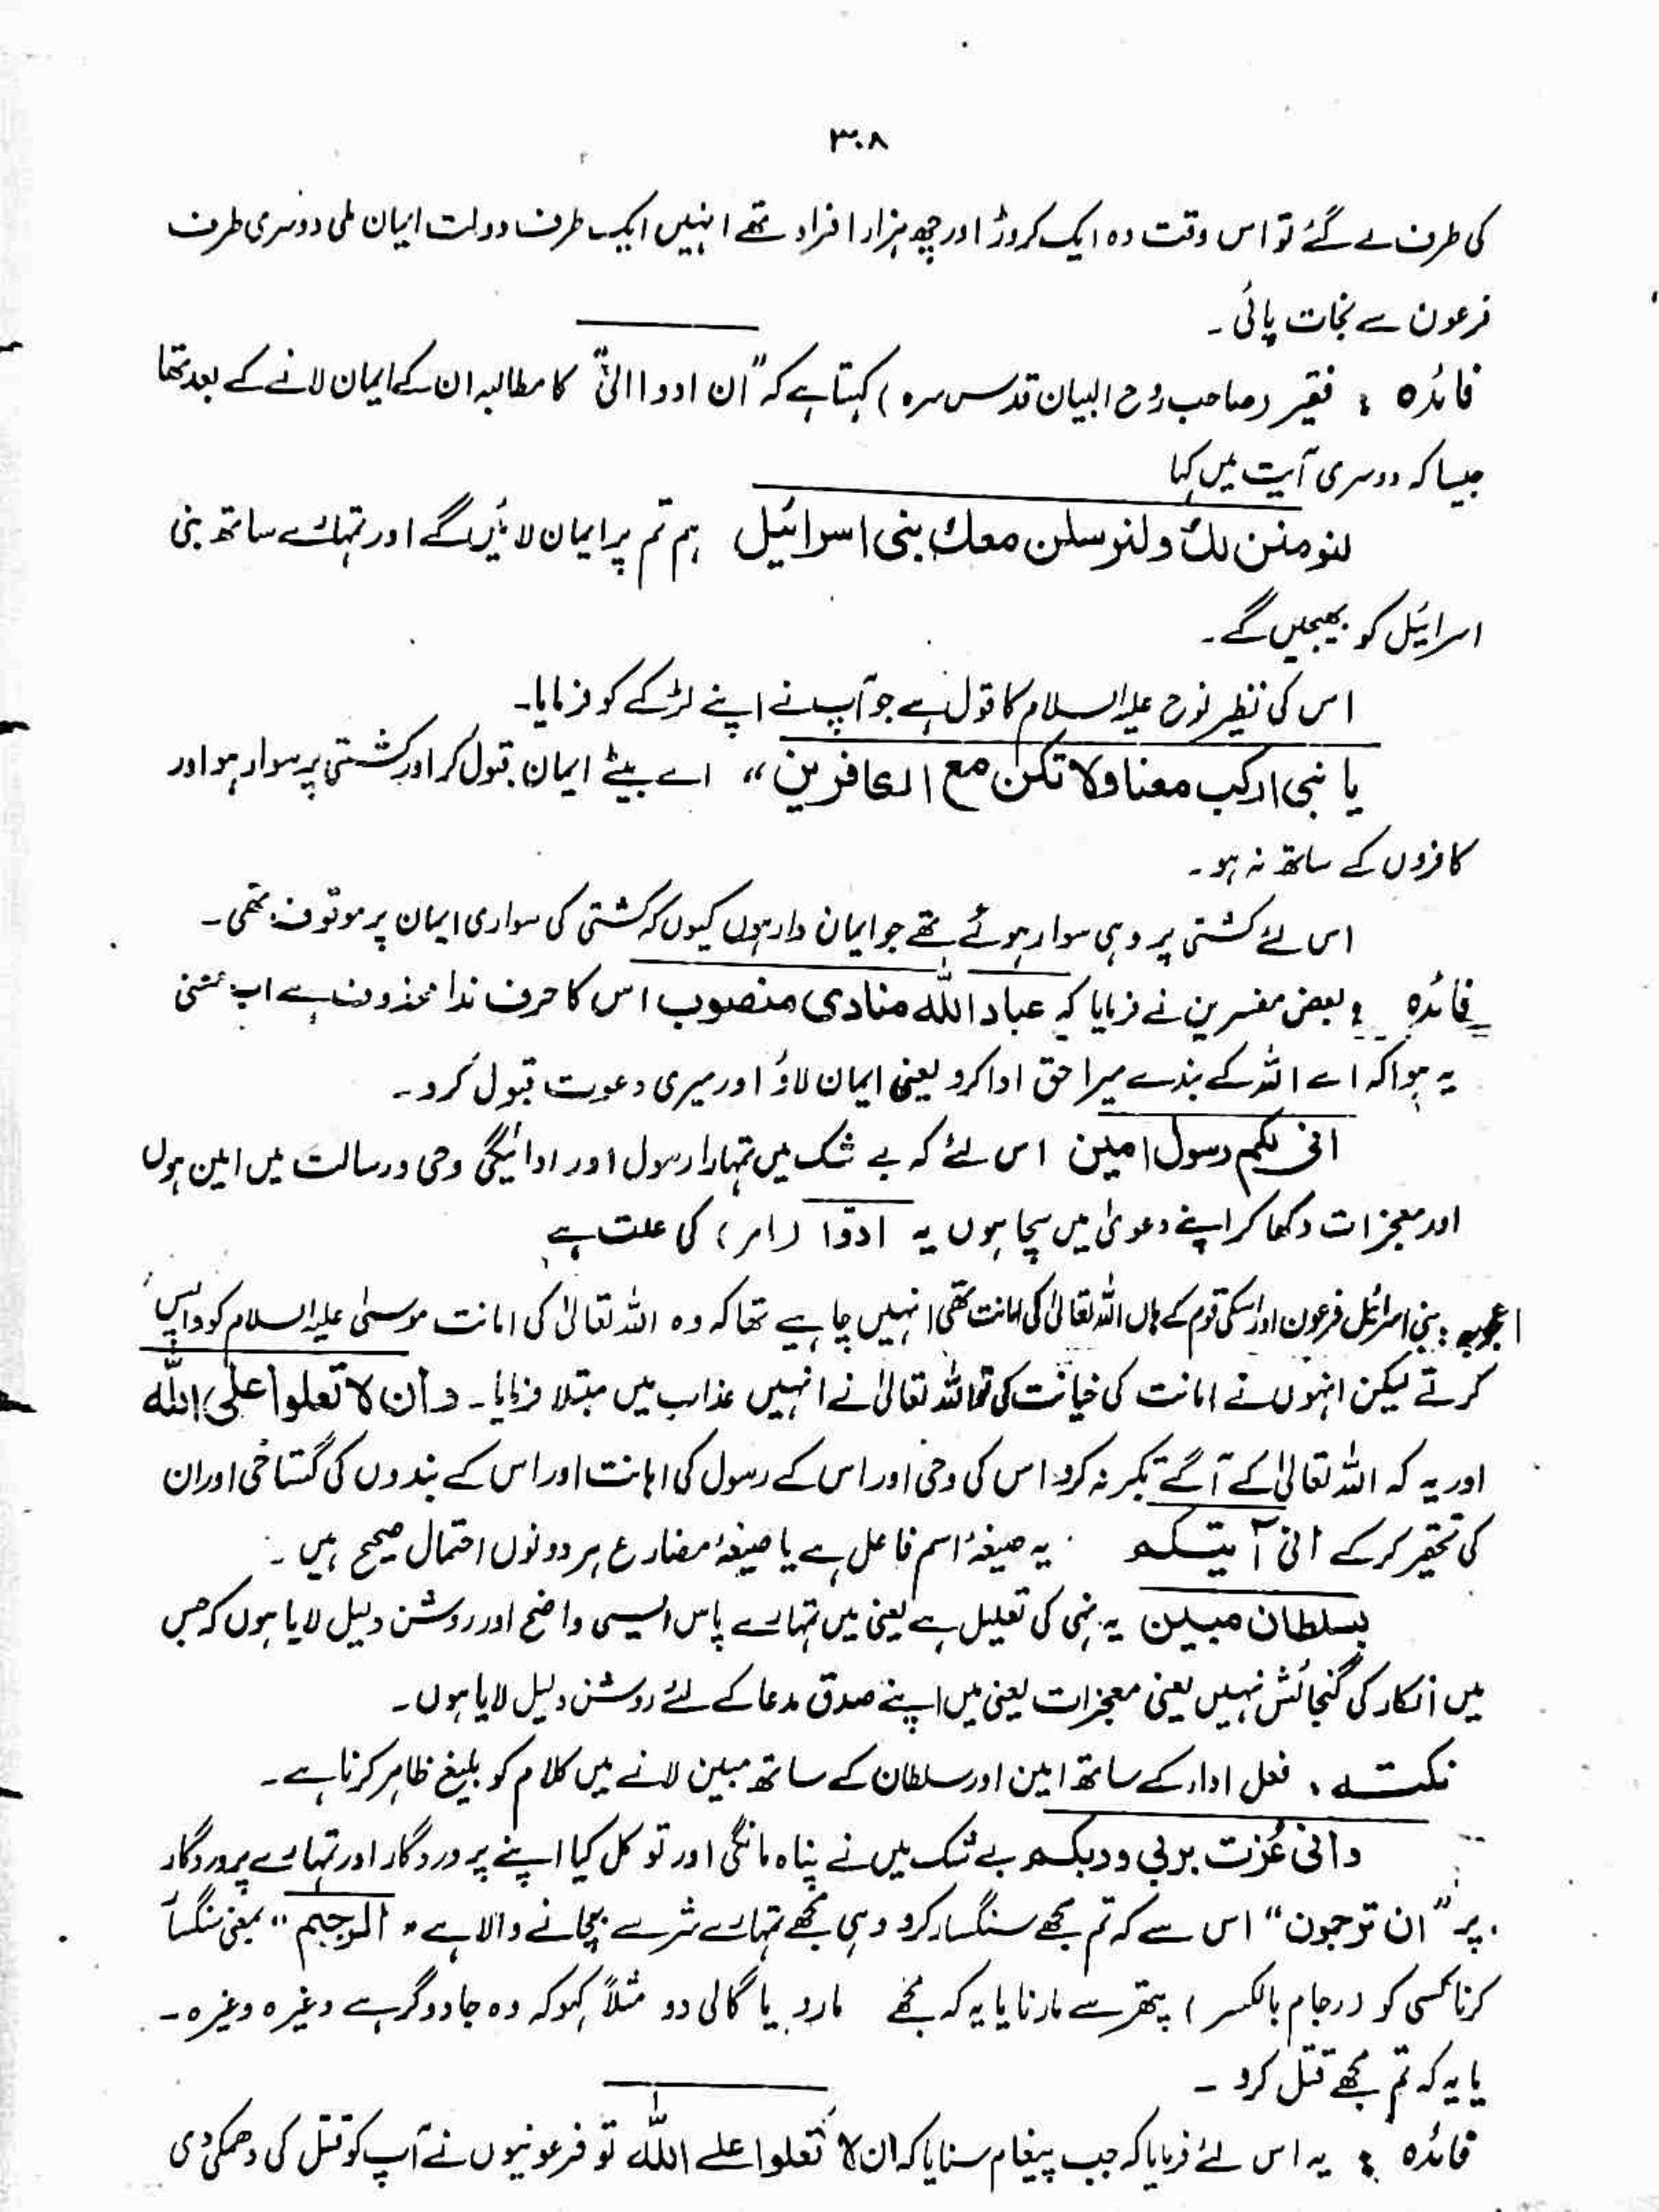 ۳۰۸
کی طرف لے گئے تو اس وقت وہ ایک کروڑ اور چھ ہزار افراد تھے انہیں ایک طرف دولت ایمان ملی دوسری طرف
فرعون سے نجات پائی۔
فائدہ : فقیر (صاحب رُوح البیان قدس سرہ) کہتا ہے کہ "اَن ادوا الیّ" کا مطالبہ ان کے ایمان لانے کے بعد تھا
جیسا کہ دوسری آیت میں کہا
لنومنن لك ولنرسلن معك بنی اسرائیل ہم تم پر ایمان لائیں گے اور تمہارے ساتھ بنی
اسرائیل کو بھیجیں گے۔
اس کی نظیر نوح علیہ السلام کا قول ہے جو آپ نے اپنے لڑکے کو فرمایا۔
یا بنی ارکب معنا ولا تکن مع الکافرین" اے بیٹے ایمان قبول کر اور کشتی پر سوار ہو اور
کافروں کے ساتھ نہ ہو۔
اس لئے کشتی پر وہی سوار ہوئے تھے جو ایمان دار ہوں کیوں کہ کشتی کی سواری ایمان پر موقوف تھی۔
فائدہ : بعض مفسرین نے فرمایا کہ عباد اللہ منادی منصوب اس کا حرف ندا محذوف ہے اب معنی
یہ ہوا کہ اے اللہ کے بندے میرا حق ادا کرو یعنی ایمان لاؤ اور میری دعوت قبول کرو۔
انی لکم رسول امین اس لئے کہ بے شک میں تمہارا رسول اور ادائیگی وحی و رسالت میں امین ہوں
اور معجزات دکھا کر اپنے دعویٰ میں سچا ہوں یہ ادّوا (امر) کی علت ہے
اعجوبہ : بنی اسرائیل فرعون اور اسکی قوم کے ہاں اللہ تعالیٰ کی امانت تھی انہیں چاہیے تھا کہ وہ اللہ تعالیٰ کی امانت موسیٰ علیہ السلام کو واپس
کرتے لیکن انہوں نے امانت کی خیانت کی تو اللہ تعالیٰ نے انہیں عذاب میں مبتلا فرمایا۔ وأن لا تعلوا علی اللہ
اور یہ کہ اللہ تعالیٰ کے آگے تکبر نہ کرو اس کی وحی اور اس کے رسول کی اہانت اور اس کے بندوں کی گستاخی اور ان
کی تحقیر کر کے انی آتیکم یہ صیغۂ اسم فاعل ہے یا صیغۂ مضارع ہر دونوں احتمال صحیح ہیں۔
بسلطان مبین یہ نہی کی تعلیل ہے یعنی میں تمہارے پاس ایسی واضح اور روشن دلیل لایا ہوں کہ جس
میں انکار کی گنجائش نہیں یعنی معجزات یعنی میں اپنے صدق مدعا کے لئے روشن دلیل لایا ہوں۔
نکتہ ، فعل اداء کے ساتھ امین اور سلطان کے ساتھ مبین لانے میں کلام کو بلیغ ظاہر کرنا ہے۔
وانی عُزت بربی وربکم بے شک میں نے پناہ مانگی اور توکل کیا اپنے پروردگار اور تمہارے پروردگار
پر "ان ترجمون" اس سے کہ تم مجھے سنگسار کرو وہی مجھے تمہارے شر سے بچانے والا ہے " الرجیم" بمعنی سنگسا
کرنا کسی کو (رجام بالکسر) پتھر سے مارنا یا یہ کہ مجھے مارو یا گالی دو مثلاً کہو کہ وہ جادوگر ہے وغیرہ وغیرہ۔
یا یہ کہ تم مجھے قتل کرو ۔
فائدہ : یہ اس لئے فرمایا کہ جب پیغام سنایا کہ ان لا تعلوا علے اللہ تو فرعونیوں نے آپ کو قتل کی دھمکی دی